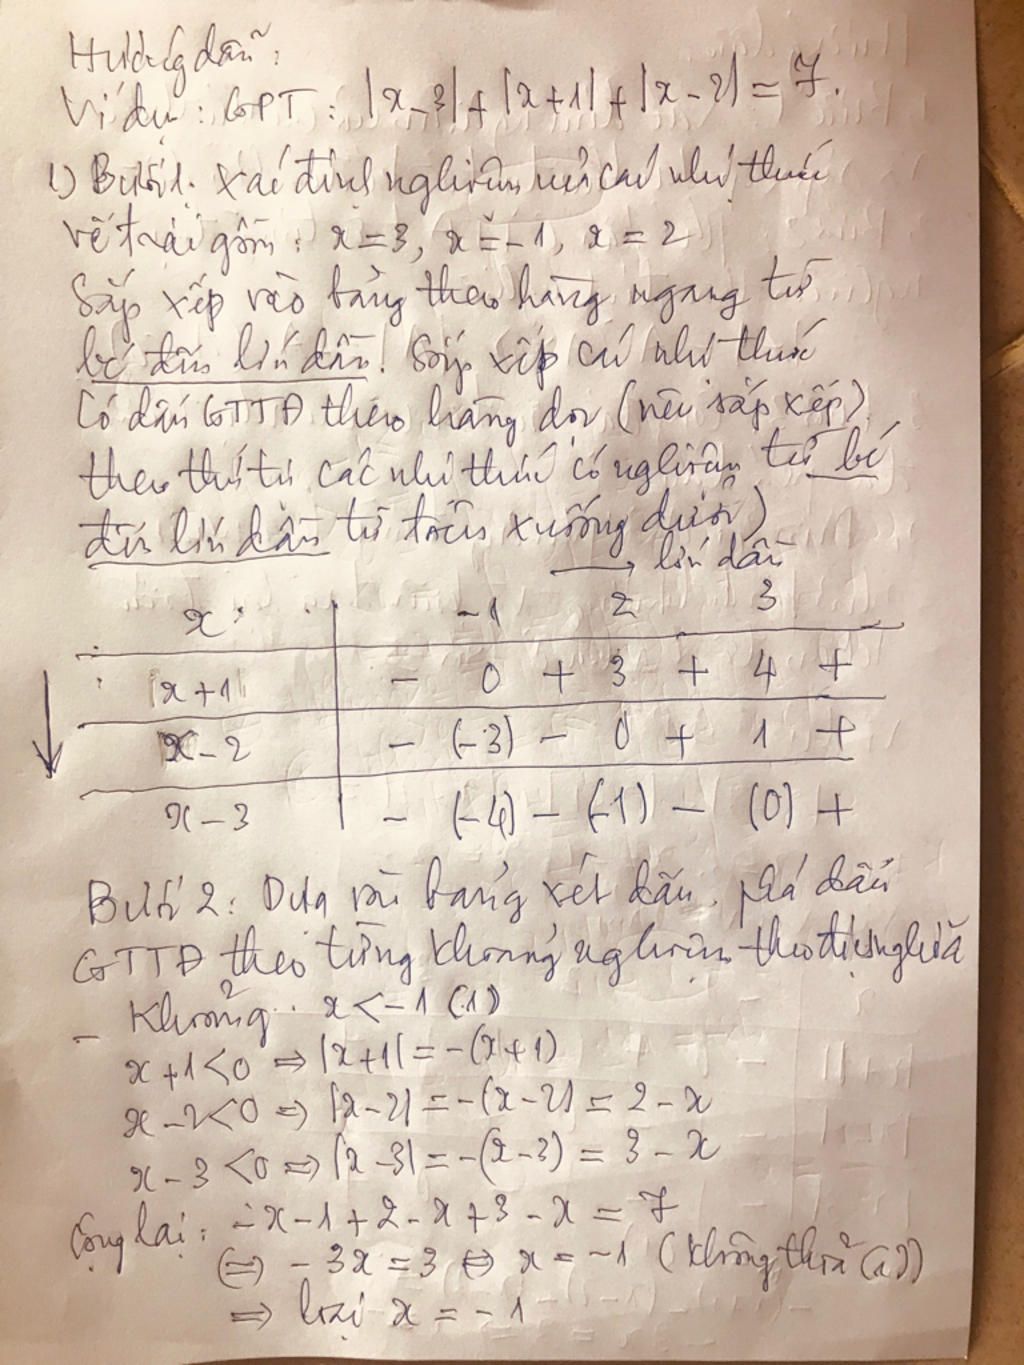 Hướng dẫn:
Ví dụ: GPT: |x-3| + |x+1| + |x-2| = 7.
1) Bước 1. Xác định nghiệm của các nhị thức
vế trái gồm: x = 3, x = -1, x = 2
Sắp xếp vào bảng theo hàng ngang từ
bé đến lớn dần! Sắp xếp các nhị thức
Có dấu GTTĐ theo hàng dọc (nên sắp xếp)
theo thứ tự các nhị thức có nghiệm từ bé
đến lớn dần từ trên xuống dưới)
→ lớn dần
x -1 2 3
|x+1| - 0 + 3 + 4 +
x-2 - (-3) - 0 + 1 +
x-3 - (-4) - (-1) - (0) +
Bước 2: Dựa vào bảng xét dấu, phá dấu
GTTĐ theo từng khoảng nghiệm theo định nghĩa
- Khoảng: x < -1 (1)
x+1 < 0 ⇒ |x+1| = -(x+1)
x-2 < 0 ⇒ |x-2| = -(x-2) = 2-x
x-3 < 0 ⇒ |x-3| = -(x-3) = 3-x
Cộng lại: -x-1+2-x+3-x = 7
⇔ -3x = 3 ⇔ x = -1 (không thoả (1))
⇒ loại x = -1